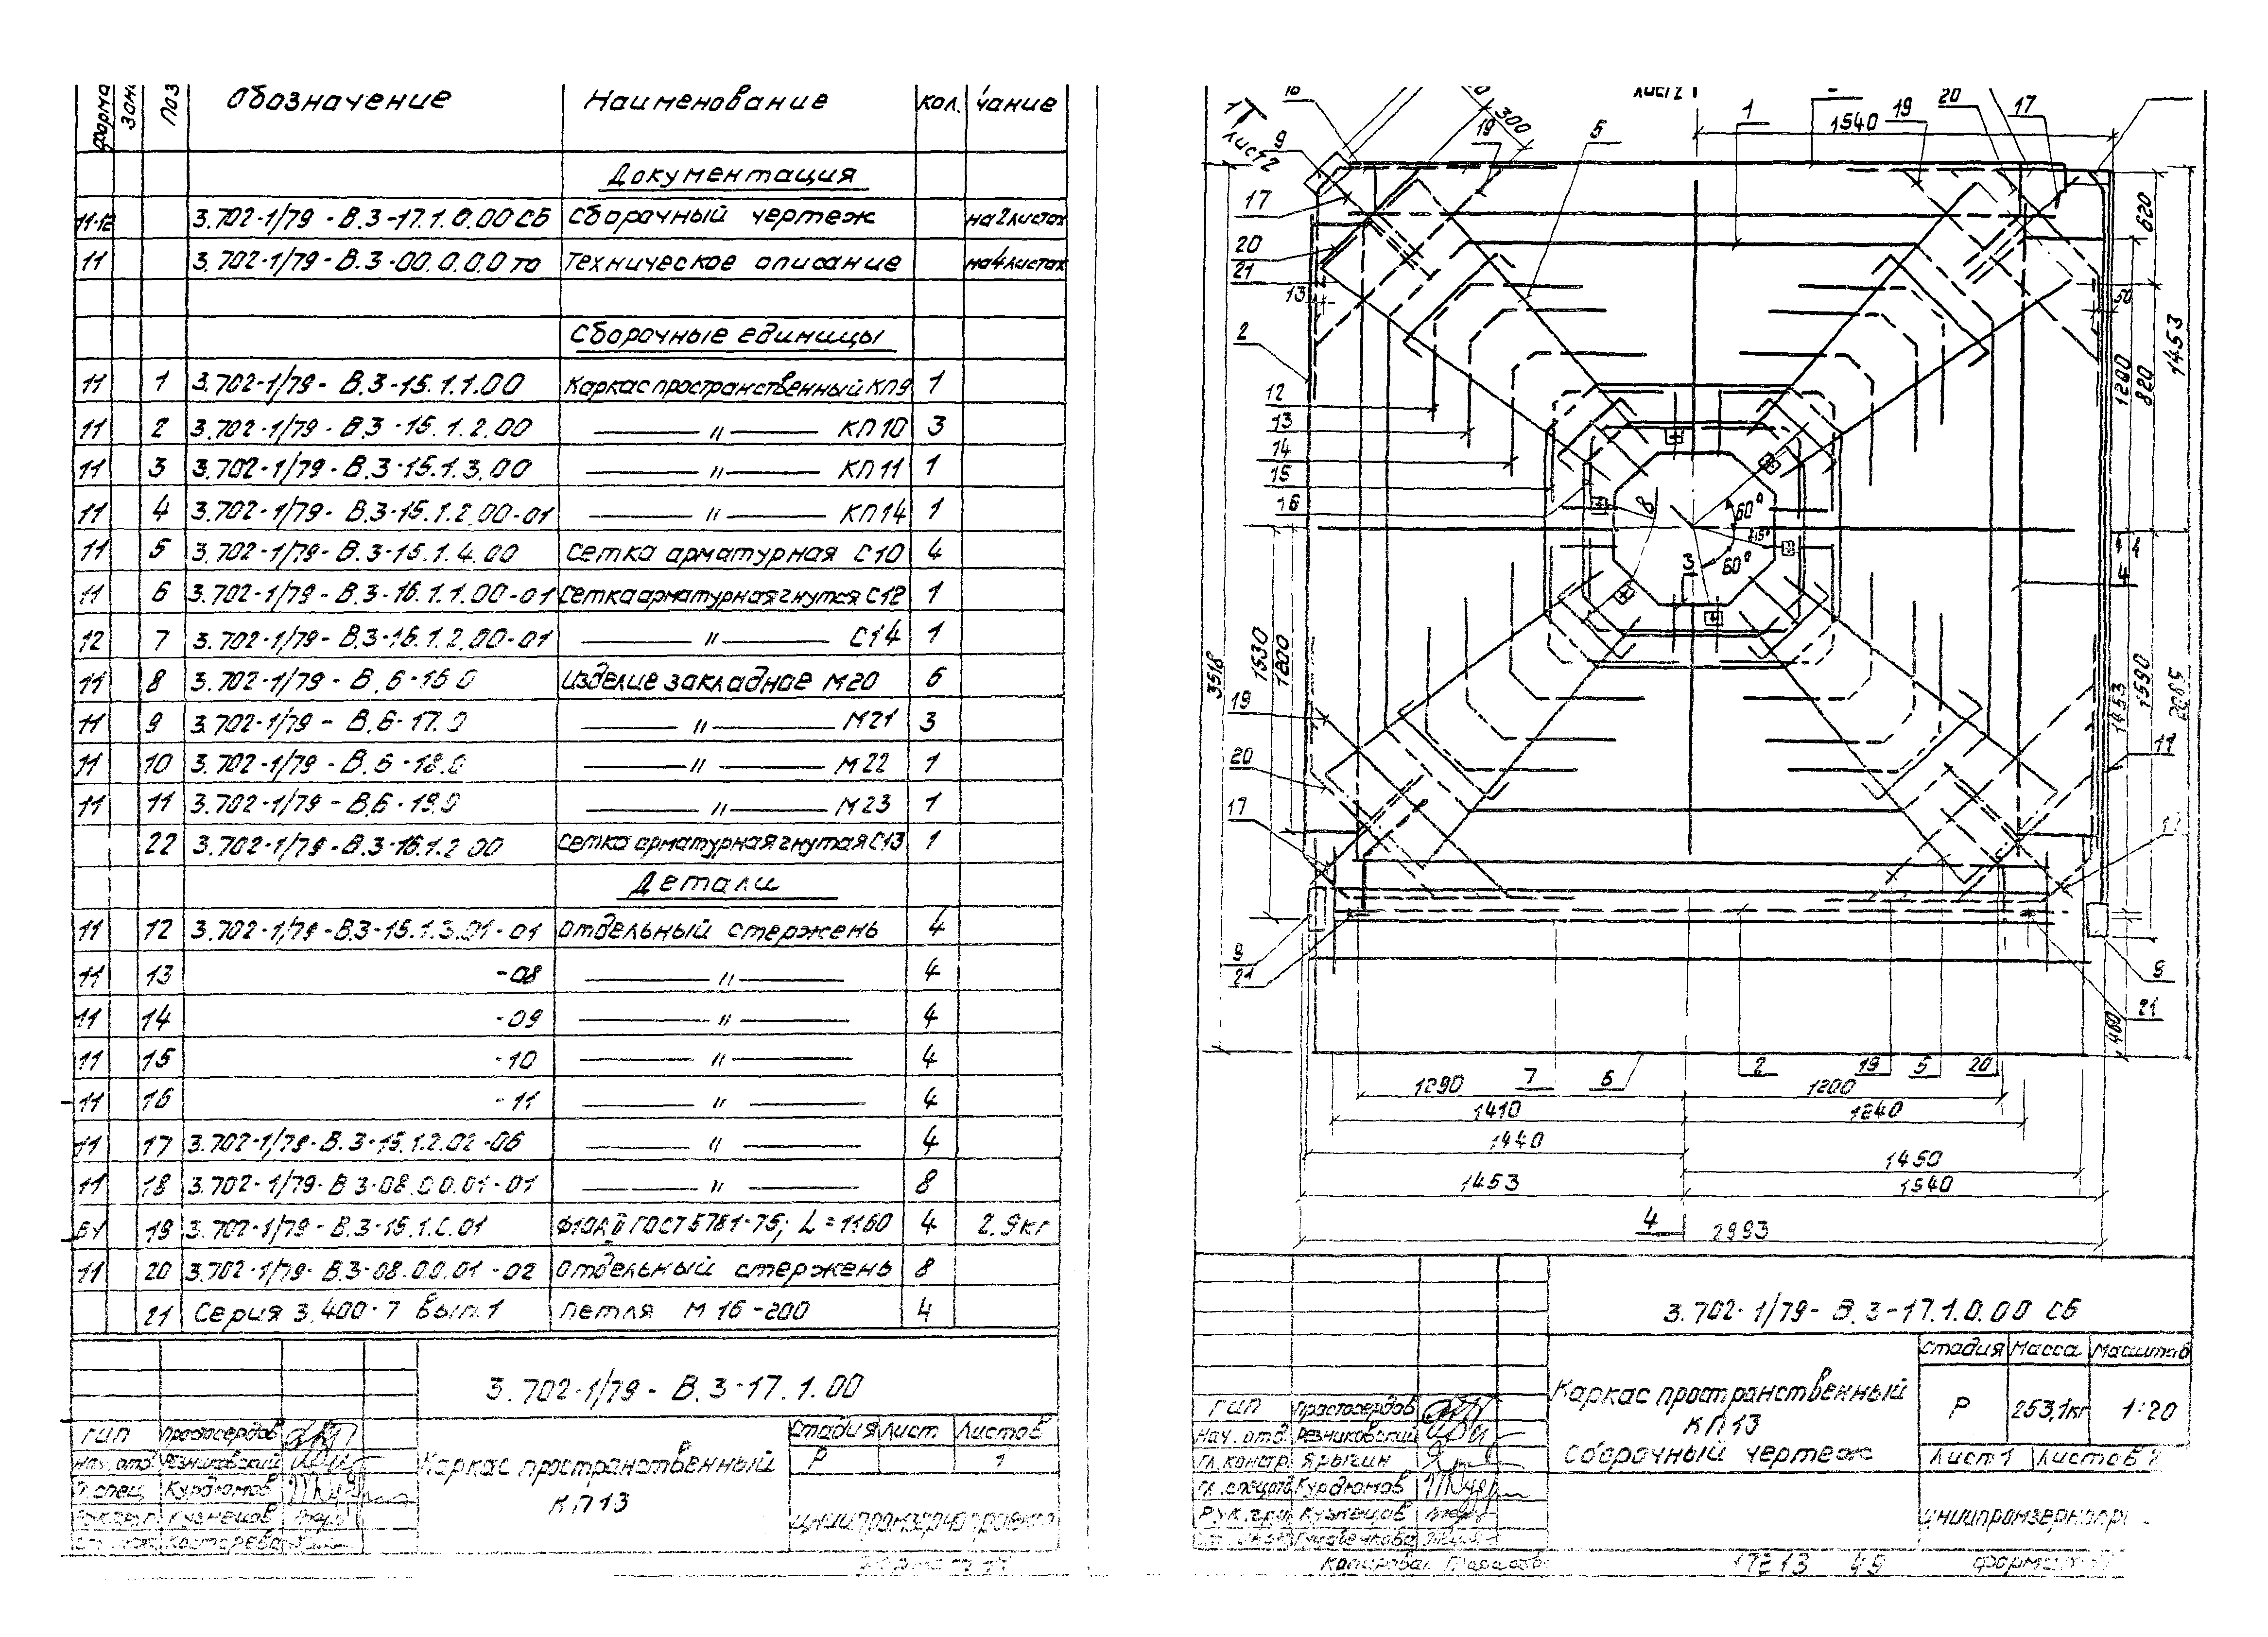 Форма Зона Поз Обозначение Наименование Кол. чание
Документация
11-12 3.702-1/79 - В.3-17.1.0.00 СБ Сборочный чертеж на 2 листах
11 3.702-1/79 - В.3-00.0.0.0 ТО Техническое описание на 4 листах
Сборочные единицы
11 1 3.702-1/79 - В.3-15.1.1.00 Каркас пространственный КП9 1
11 2 3.702-1/79 - В.3-15.1.2.00 —— " —— КП10 3
11 3 3.702-1/79 - В.3-15.1.3.00 —— " —— КП11 1
11 4 3.702-1/79 - В.3-15.1.2.00-01 —— " —— КП14 1
11 5 3.702-1/79 - В.3-15.1.4.00 Сетка арматурная С10 4
11 6 3.702-1/79 - В.3-16.1.1.00-01 Сетка арматурная гнутая С12 1
12 7 3.702-1/79 - В.3-16.1.2.00-01 —— " —— С14 1
11 8 3.702-1/79 - В.6-16.0 Изделие закладное М20 6
11 9 3.702-1/79 - В.6-17.0 —— " —— М21 3
11 10 3.702-1/79 - В.6-18.0 —— " —— М22 1
11 11 3.702-1/79 - В.6-19.0 —— " —— М23 1
22 3.702-1/79 - В.3-16.1.2.00 Сетка арматурная гнутая С13 1
Детали
11 12 3.702-1/79 - В.3-15.1.3.01-01 Отдельный стержень 4
11 13 -08 —— " —— 4
11 14 -09 —— " —— 4
11 15 -10 —— " —— 4
11 16 -11 —— " —— 4
11 17 3.702-1/79 - В.3-15.1.2.02-06 —— " —— 4
11 18 3.702-1/79 - В 3-08.00.01-01 —— " —— 8
БЧ 19 3.702-1/79 - В.3-15.1.С.01 Ф10АII ГОСТ 5781-75; L=1160 4 2.9кг
11 20 3.702-1/79 - В.3-08.0.0.01-02 Отдельный стержень 8
21 Серия 3.400-7 Вып.1 Петля М 16-200 4
3.702-1/79 - В.3-17.1.00
ГИП Простосердов
Нач. отд. Резниковский
Гл. спец. Курдюмов
Рук. гр. Кузнецов
Ст. инж. Костарева
Каркас пространственный
КП13
Стадия Лист Листов
Р 1
ЦНИИПРОМЗЕРНОПРОЕКТ
Формат 11
лист 2
1Т
лист 2
18
9
17
20
21
13
2
300
19
5
1
1540
19
20
17
620
50
1200
820
1453
12
13
14
15
16
8
60°
15°
60°
3
4
4
3518
1530
1200
19
20
17
9
21
1453
1590
2065
11
9
21
460
1290
7
6
2
19
5
20
1200
1410
1240
1440
1450
1453
1540
4
2993
3.702-1/79 - В.3-17.1.0.00 СБ
ГИП Простосердов
Нач. отд. Резниковский
Гл. констр. Ярыгин
Гл. спец. отд. Курдюмов
Рук. гр. Кузнецов
Каркас пространственный
КП13
Сборочный чертеж
Стадия Масса Масштаб
Р 253,1кг 1:20
Лист 1 Листов 2
ЦНИИпромзернопр
Копировал Тарасова
17213 49 Формат